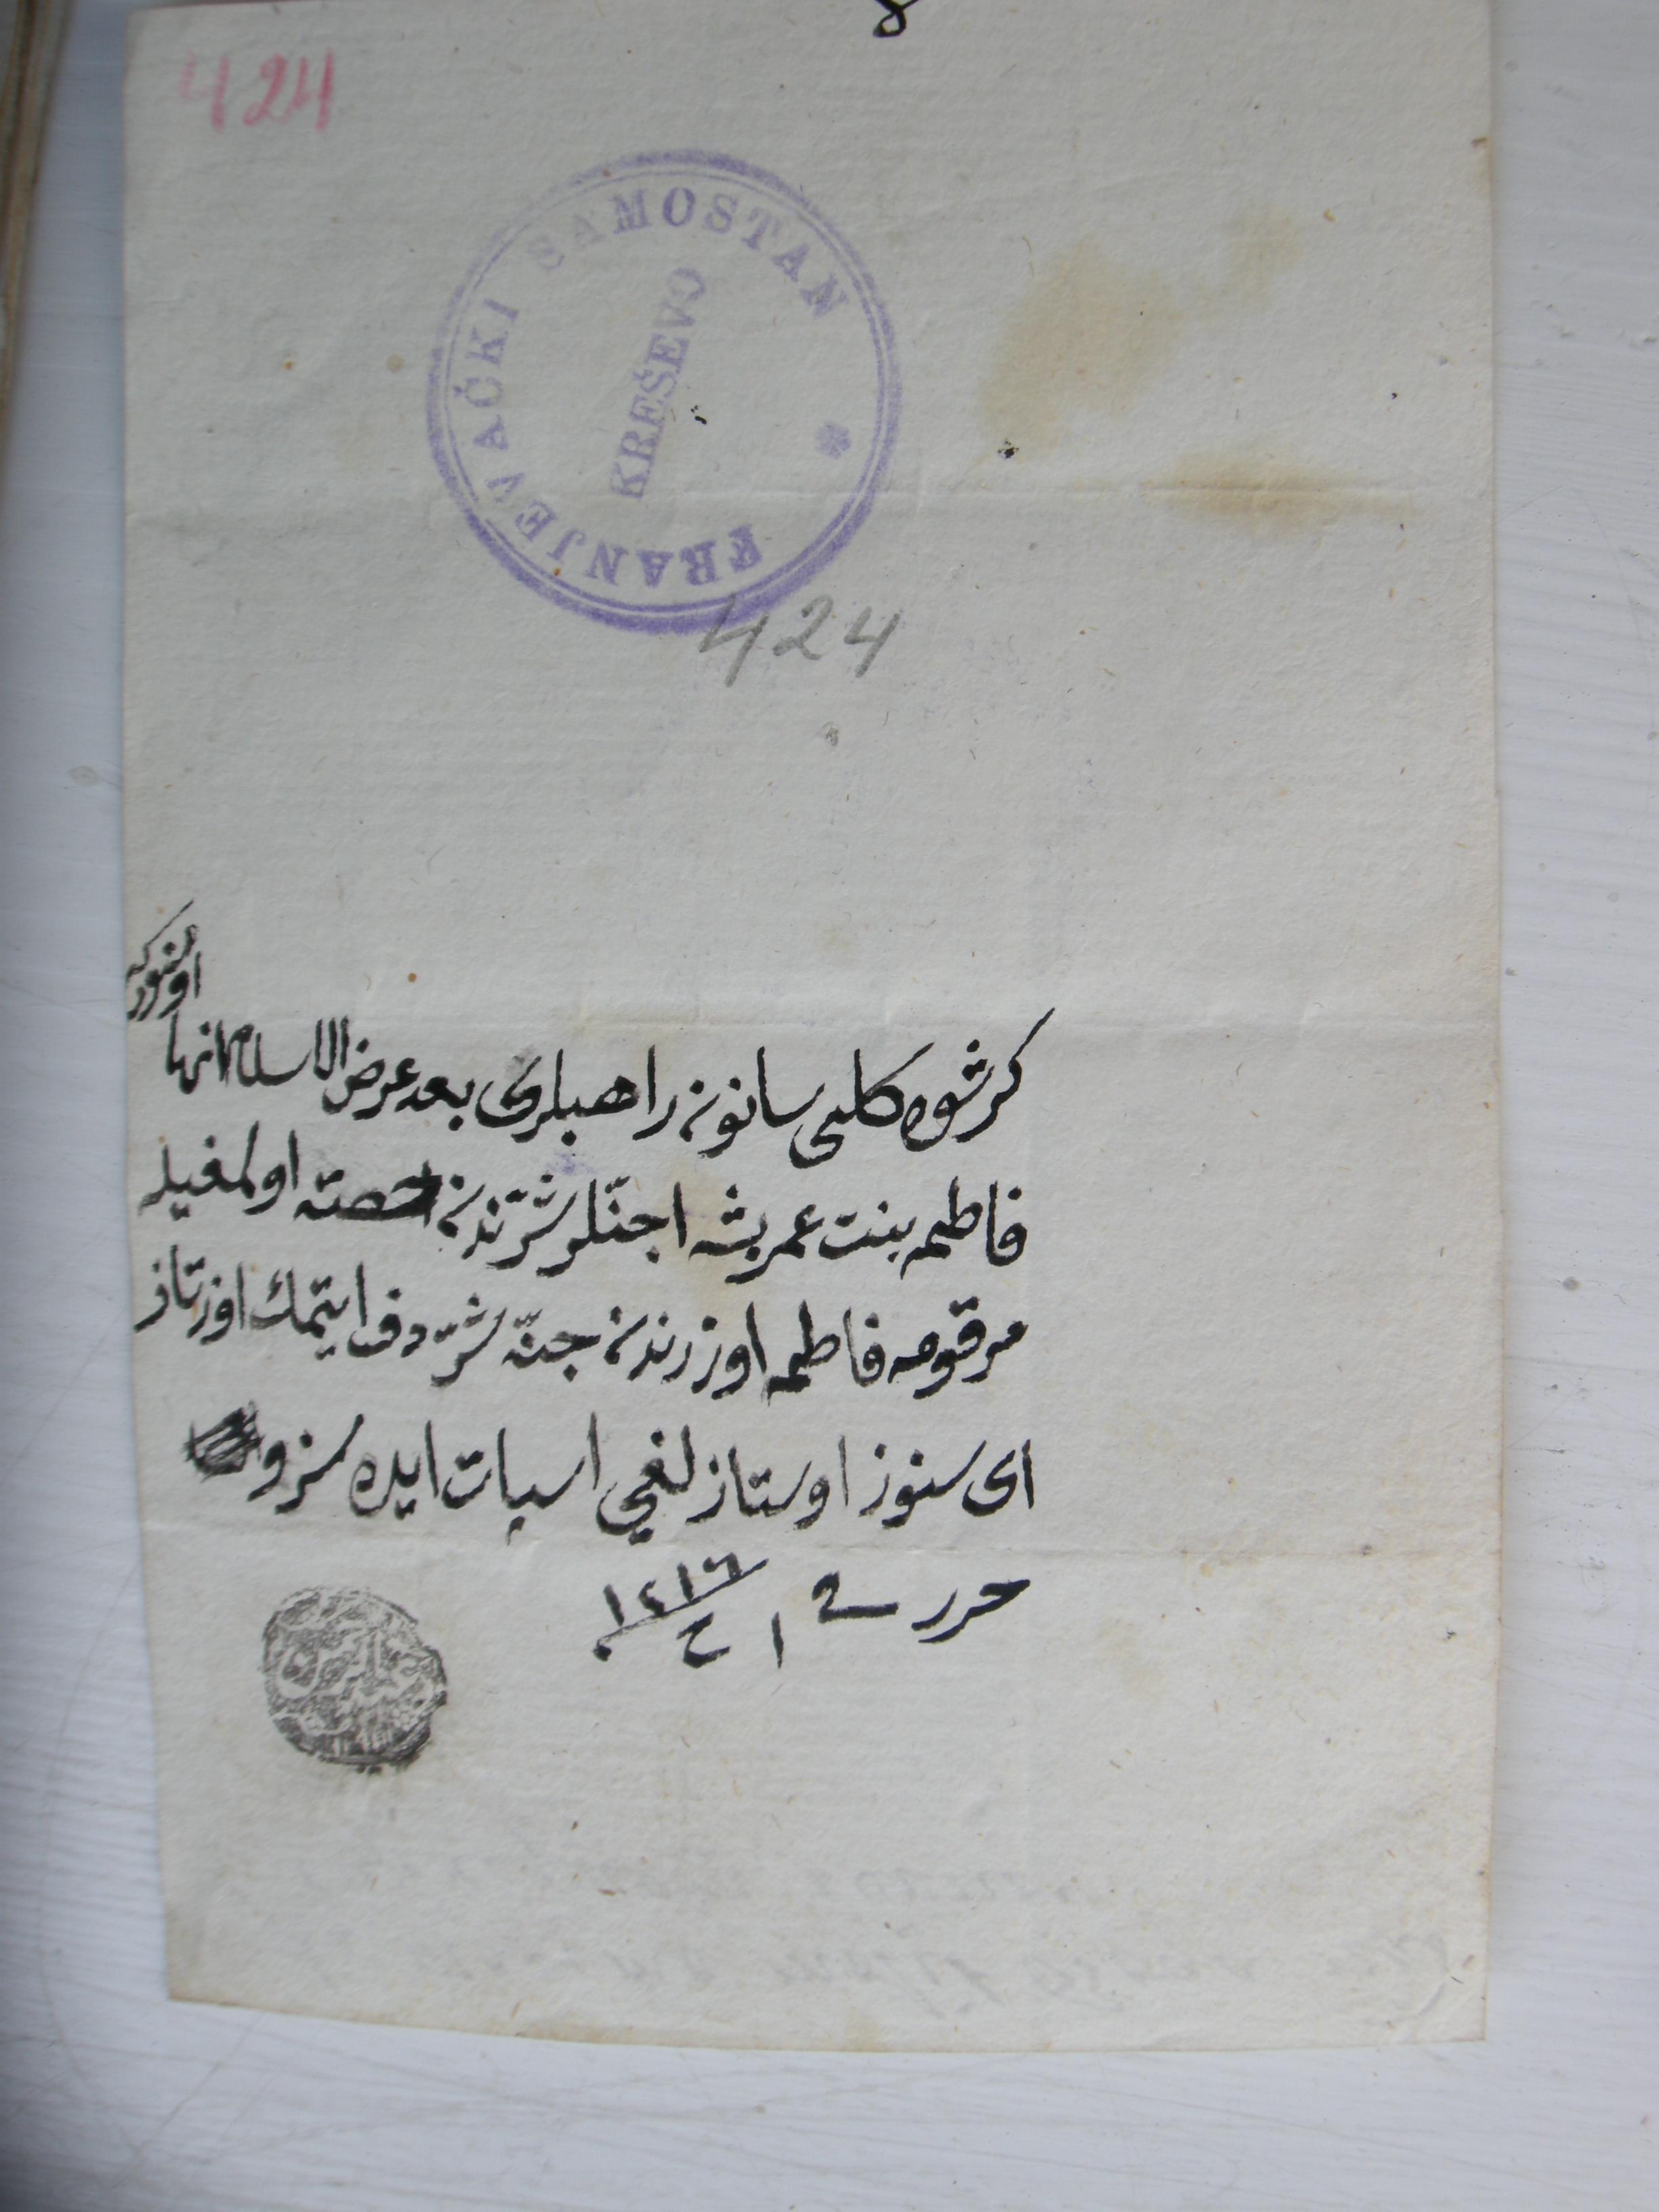 424
FRANJEVAČKI SAMOSTAN
KREŠEVO
424
اولنوركه
كرشوه كلمى سانونه راهبلرى بعد عرض الاسلام انها
فاطمه بنت عمر بشه اجنّلر شرّندنه خصته اولمغيله
مرقومه فاطمه اوزرندنه جنّه شرّ دفى ايتمك اوزتاز
اى سنوز اوستازلغي اسبات ايده سز و
حرر سه ١ ح ١٢١٦